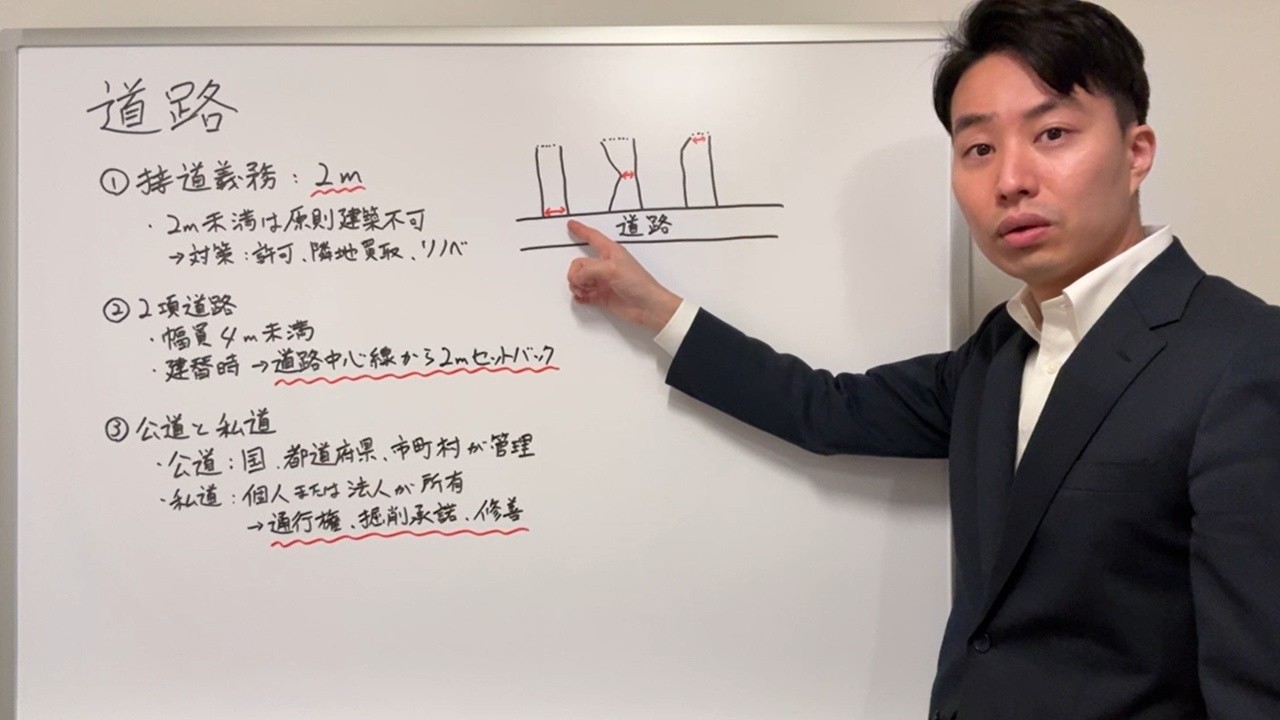 道路
① 持道義務：2m
・2m未満は原則建築不可
→対策：許可、隣地買取、リノベ
② 2項道路
・幅員4m未満
・建替時→道路中心線から2mセットバック
③ 公道と私道
・公道：国、都道府県、市町村が管理
・私道：個人または法人が所有
→通行権、掘削承諾、修善
道路